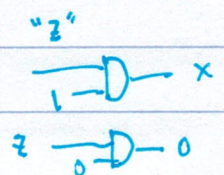 "Z"
1 X
Z 0 0